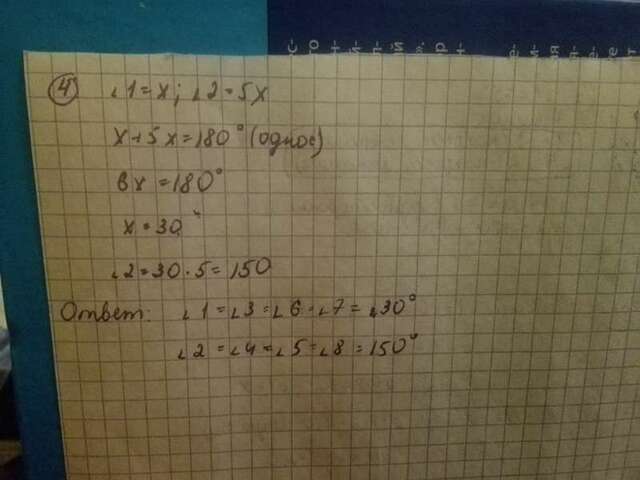 ④ ∠1=x; ∠2=5x
x+5x=180° (однос)
6x=180°
x=30°
∠2=30·5=150
Ответ: ∠1=∠3=∠6=∠7=∠30°
∠2=∠4=∠5=∠8=150°